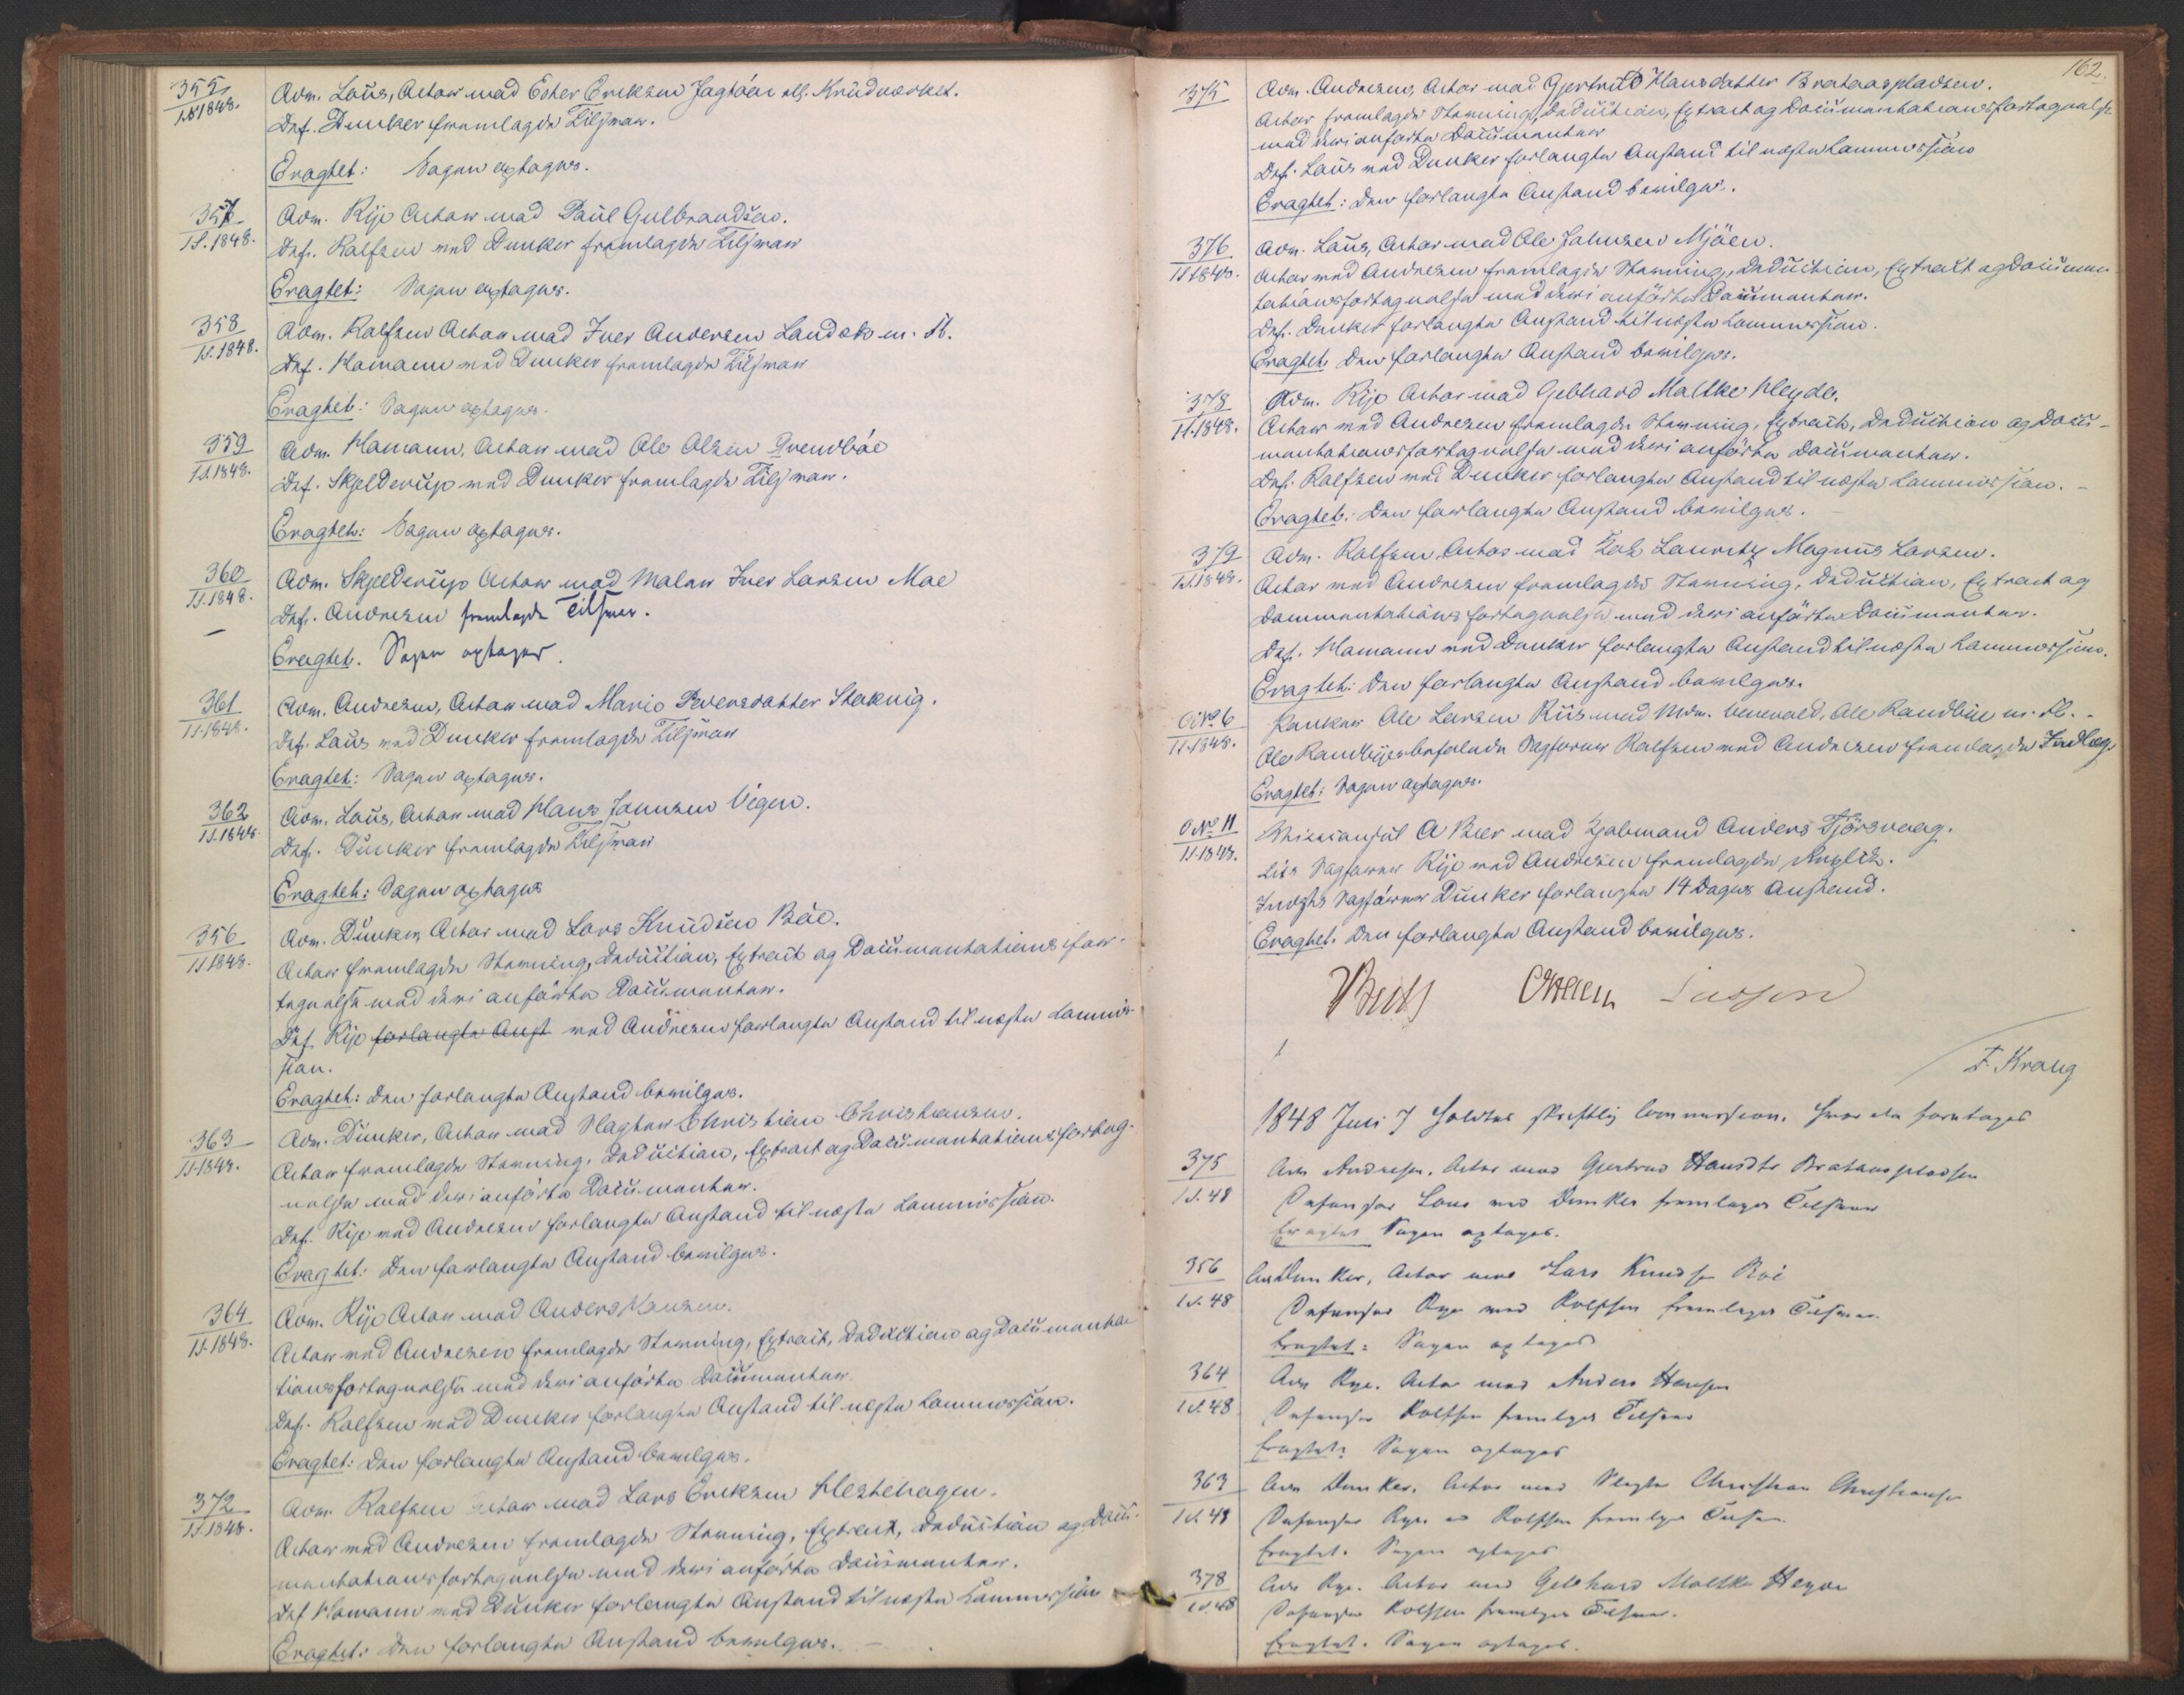 355
1S 1848.
Adv. Lous, Actor mod Peder Ericksen Jagtöen all. Krudværket.
Def. Dunker fremlagde Tilsvar.
Eragtet: Sagen optages.
357
1S. 1848.
Adv. Rije Actor mod Paul Gulbrandsen.
Def. Rolfsen med Dunker fremlagde Tilsvar
Eragtet: Sagen optages.
358
1S. 1848.
Adv. Rolfsen Actor mod Iver Andersen Landok m. Fl.
Def. Homann med Dunker fremlagde Tilsvar
Eragtet: Sagen optages.
359
1S. 1848.
Adv. Homann, Actor mod Ole Olsen
Def. Skjelderup med Dunker fremlagde Tilsvar.
Eragtet: Sagen optages.
360
1S. 1848.
Adv. Skjelderup Actor mod Maler Iver Larsen Moe
Def. Andresen fremlagde Tilsvar.
Eragtet. Sagen optages.
361
1S. 1848.
Adv. Andresen, Actor mod Marie Pedersdatter
Def. Lous med Dunker fremlagde Tilsvar
Eragtet: Sagen optages.
362
1S. 1848.
Adv. Lous, Actor mod Hans Jonnsen Vigen.
Def. Dunker fremlagde Tilsvar
Eragtet: Sagen optages
356
1S 1848.
Adv. Dunker, Actor mod Lars Knudsen Böe.
Actor fremlagde Stevning, Deduction, Extract og Documentationsfor-
tegnelse med deri anførte Documenter.
Def. Rije forlangte Anst med Andresen forlangte Anstand til næste Commis-
sion.
Eragtet: Den forlangte Anstand bevilges.
363
1S. 1848.
Adv. Dunker, Actor mod Slagter Christian Christiansen.
Actor fremlagde Stevning, Deduction, Extract og Documentationsforteg-
nelse med deri anførte Documenter.
Def. Rije med Andresen forlangte Anstand til næste Commission.
Eragtet: Den forlangte Anstand bevilges.
364
1S. 1848.
Adv. Rije Actor mod Anders Hansen.
Actor med Andresen fremlagde Stevning, Extract, Deduction og Documenta
tionsfortegnelse med deri anførte Documenter.
Def. Rolfsen med Dunker forlangte Anstand til næste Commission.
Eragtet: Den forlangte Anstand bevilges.
372
1S. 1848.
Adv. Rolfsen Actor mod Lars Ericksen Hestehagen.
Actor med Andresen fremlagde Stevning, Extract, Deduction og Docu-
mentationsfortegnelse med deri anførte Documenter.
Def Homann med Dunker forlangte Anstand til næste Commission
Eragtet: Den forlangte Anstand bevilges.
162.
375
Adv. Andresen, Actor mod Gjertrud Hansdatter Brataaspladsen.
Actor fremlagde Stevning, Deduction, Extract og Documentationsfortegnelse
med deri anførte Documenter
Def. Lous med Dunker forlangte Anstand til næste Commission
Eragtet: Den forlangte Anstand bevilges.
376
1S. 1848.
Adv. Lous, Actor mod Ole Johnsen Mjöen.
Actor med Andresen fremlagde Stevning, Deduction, Extract og Documen-
tationsfortegnelse med deri anførte Documenter.
Def. Dunker forlangte Anstand til næste Commission.
Eragtet. Den forlangte Anstand bevilges.
378
1S. 1848.
Adv. Rije Actor mod Gebhard Moltke Heyde.
Actor med Andresen fremlagde Stevning, Extract, Deduction og Docu-
mentationsfortegnelse med deri anførte Documenter.
Def. Rolfsen med Dunker forlangte Anstand til næste Commission.
Eragtet: Den forlangte Anstand bevilges.
379
1S. 1848.
Adv. Rolfsen, Actor mod Lauritz Magnus Larsen.
Actor med Andresen fremlagde Stevning, Deduction, Extract og
Documentationsfortegnelse med deri anførte Documenter.
Def. Homann med Dunker forlangte Anstand til næste Commission.
Eragtet: Den forlangte Anstand bevilges.
O No 6
1S. 1848.
Ole Larsen Riis mod Ole m. Fl.
Ole befalede Sagfører Rolfsen med Andresen fremlagde Indlæg.
Eragtet: Sagen optages.
O No 11
1S. 1848.
A Beer mod Anders Tjörsvaag.
Sagfører Rije med Andresen fremlagde
Sagfører Dunker forlangte 14 Dages Anstand.
Eragtet. Den forlangte Anstand bevilges.
F. Krang
1848 Juni 7 holdtes skriftlig Commission. hvor da foretoges
375
1S. 48
Adv Andresen. Actor mod Gjertrud Hansdtr Brataaspladsen
Defensor Lous med Dunker fremlagde Tilsvar
Eragtet Sagen optages.
356
1S. 48
Adv Dunker, Actor mod Lars Knudsen Böe
Defensor Rye med Rolfsen fremlagde Tilsvar.
Eragtet: Sagen optages
364
1S. 48
Adv Rye. Actor mod Anders Hansen
Defensor Rolfsen fremlagde Tilsvar
Eragtet: Sagen optages
363
1S. 48
Adv Dunker. Actor mod Slagter Christian Christiansen
Defensor Rye Rolfsen fremlagde Tilsvar.
Eragtet. Sagen optages
378
1S. 48
Adv Rye. Actor mod Gebhard Moltke Heyde
Defensor Rolfsen fremlagde Tilsvar.
Eragtet. Sagen optages.